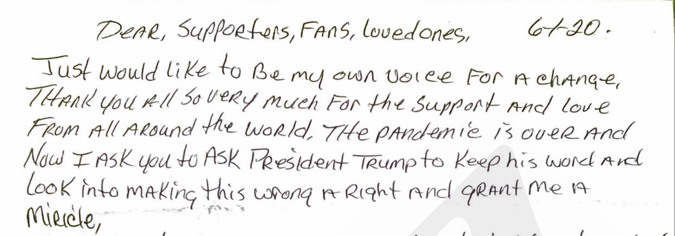 Dear, Supporters, Fans, Lovedones, 6-1-20.
Just would like to Be my own voice For A change,
THANK you All So very much For the Support And love
From All Around the world, The pandemic is over And
Now I Ask you to Ask President Trump to Keep his word And
look into making this wrong A Right And grant me A
Miricle,